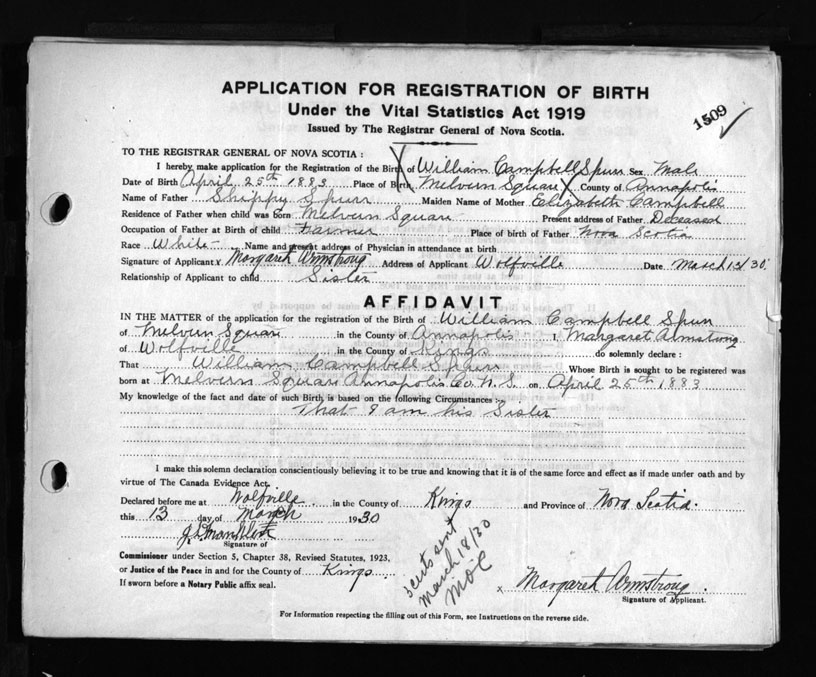 APPLICATION FOR REGISTRATION OF BIRTH
Under the Vital Statistics Act 1919
Issued by The Registrar General of Nova Scotia.
1509
TO THE REGISTRAR GENERAL OF NOVA SCOTIA :
I hereby make application for the Registration of the Birth of William Campbell Spurr Sex Male
Date of Birth April 25th 1883 Place of Birth Melvern Square County of Annapolis
Name of Father Shippy Spurr Maiden Name of Mother Elizabeth Campbell
Residence of Father when child was born Melvern Square Present address of Father Deceased
Occupation of Father at Birth of child Farmer Place of birth of Father Nova Scotia
Race White Name and present address of Physician in attendance at birth
Signature of Applicant x Margaret Armstrong Address of Applicant Wolfville Date March 13/30
Relationship of Applicant to child Sister
AFFIDAVIT
IN THE MATTER of the application for the registration of the Birth of William Campbell Spurr
of Melvern Square in the County of Annapolis I, Margaret Armstrong
of Wolfville in the County of Kings do solemnly declare :
That William Campbell Spurr Whose Birth is sought to be registered was
born at Melvern Square Annapolis Co. N.S. on April 25th 1883
My knowledge of the fact and date of such Birth is based on the following Circumstances :-
That I am his Sister
I make this solemn declaration conscientiously believing it to be true and knowing that it is of the same force and effect as if made under oath and by
virtue of The Canada Evidence Act.
Declared before me at Wolfville in the County of Kings and Province of Nova Scotia.
this 13 day of March 1930
Signature of
Commissioner under Section 5, Chapter 38, Revised Statutes, 1923,
or Justice of the Peace in and for the County of Kings
If sworn before a Notary Public affix seal.
sent
March 18/30
MOC
x Margaret Armstrong.
Signature of Applicant.
For Information respecting the filling out of this Form, see Instructions on the reverse side.